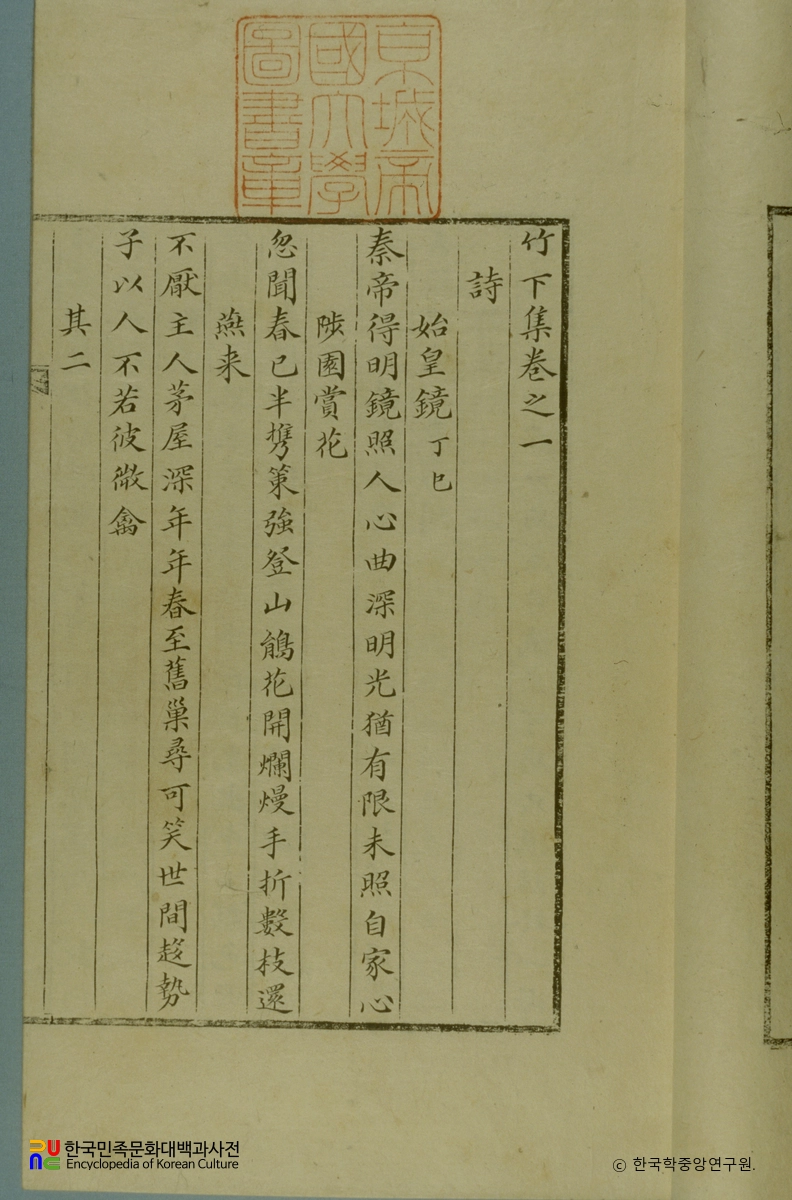 京城帝
國大學
圖書章
竹下集卷之一
詩
始皇鏡 丁巳
秦帝得明鏡照人心曲深明光猶有限未照自家心
陟園賞花
忽聞春已半携策強登山鵑花開爛熳手折數枝還
燕来
不厭主人茅屋深年年春至舊巢尋可笑世間趍勢
子以人不若彼微禽
其二
한국민족문화대백과사전
Encyclopedia of Korean Culture
ⓒ 한국학중앙연구원.